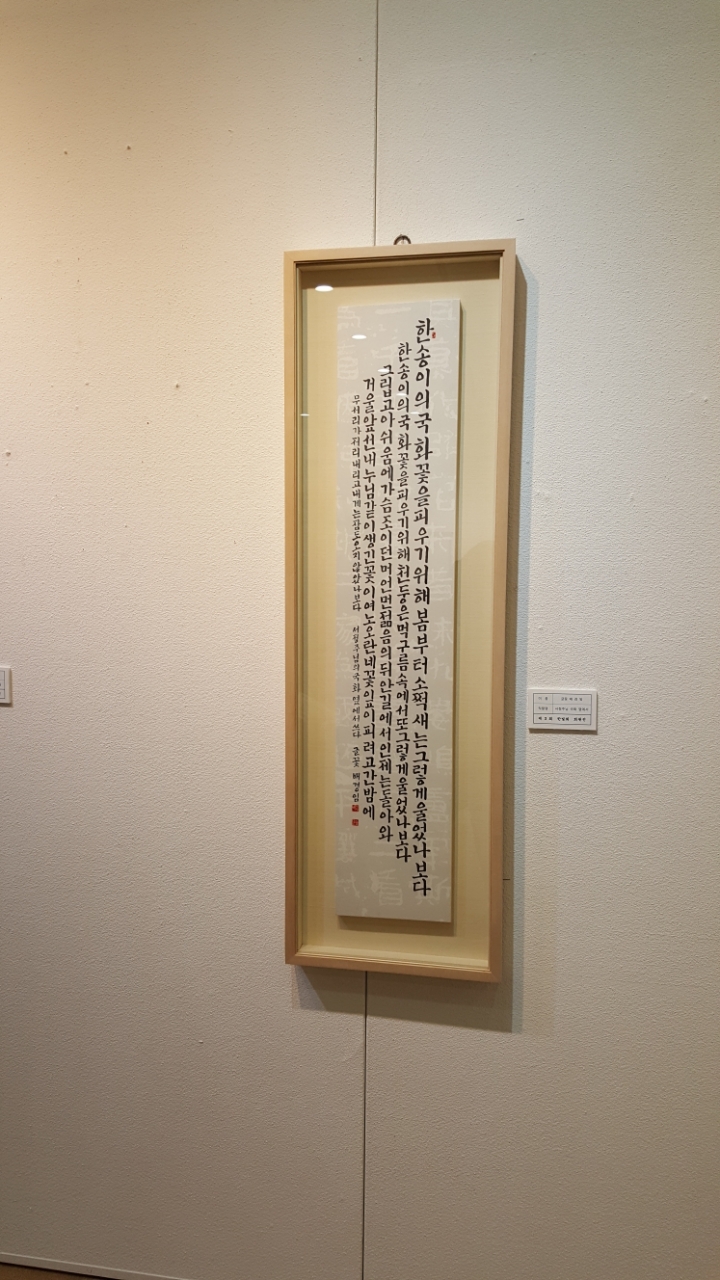 한송이의국화꽃을피우기위해봄부터소쩍새는그렇게울었나보다
한송이의국화꽃을피우기위해천둥은먹구름속에서또그렇게울었나보다
그립고아쉬움에가슴조이던머언먼젊음의뒤안길에서인제는돌아와
거울앞선내누님같이생긴꽃이여노오란네꽃잎이피려고간밤에
무서리가저리내리고내게는잠도오지않았나보다 서정주님의국화옆에서쓰다